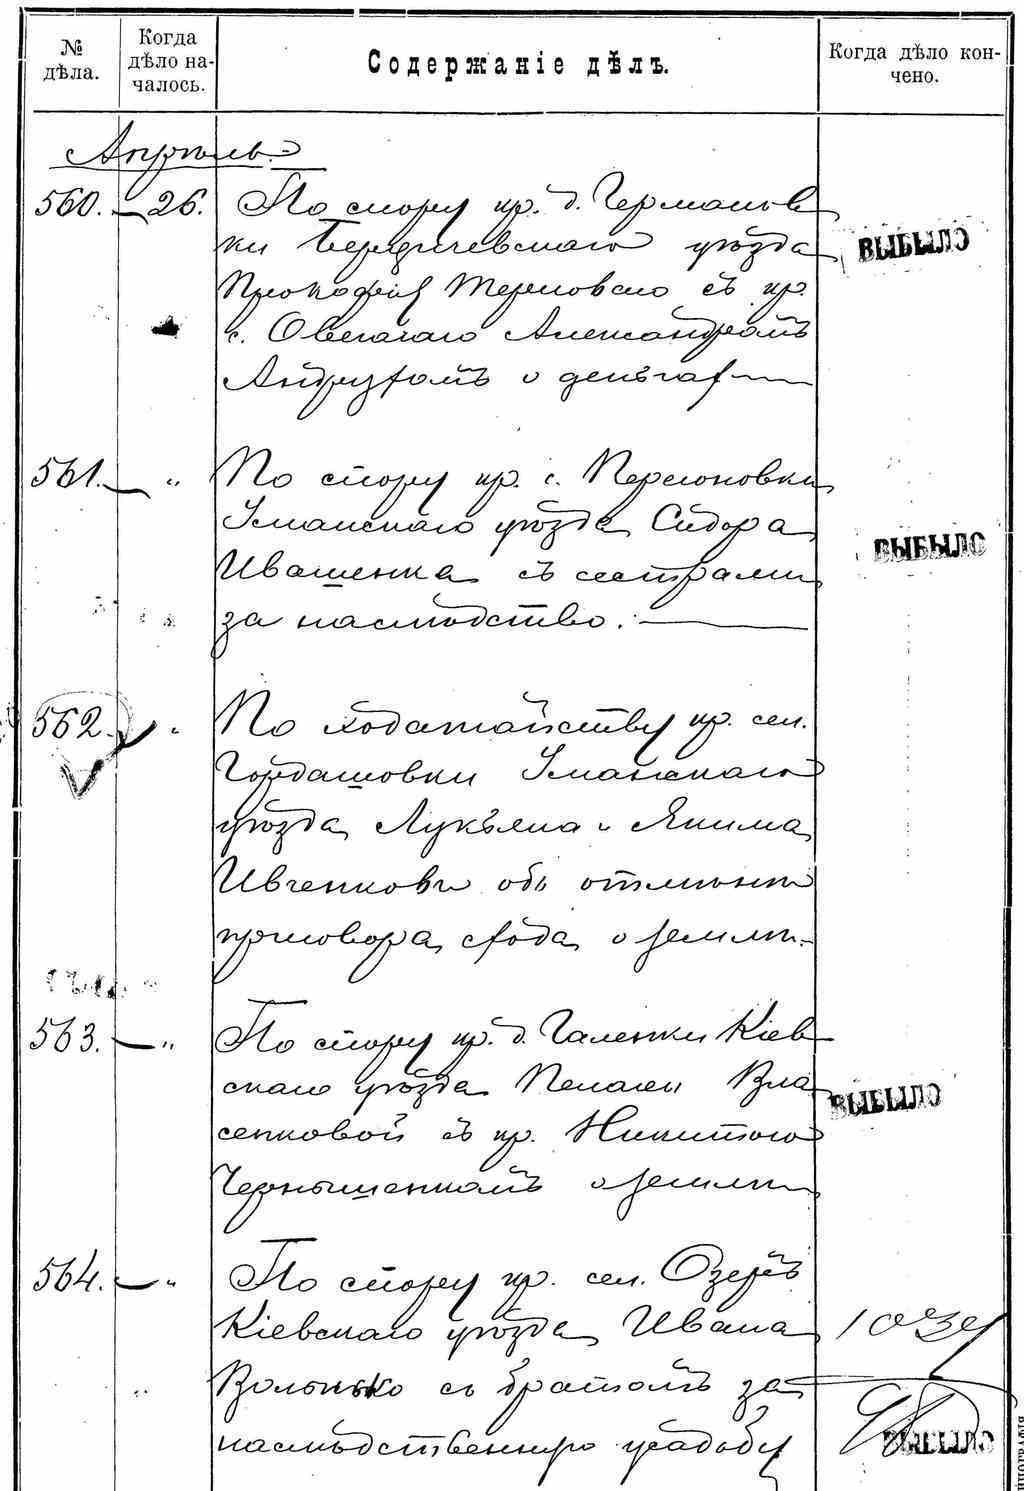 № дѣла.
Когда дѣло на-
чалось.
Содержаніе дѣлъ.
Когда дѣло кон-
чено.
Апрѣль
560. 26. По спору кр. д. Германов
ки Бердичевскаго уѣзда
Прокофія Терновскаго съ кр.
с. Александромъ
о деньгах
ВЫБЫЛО
561. " По спору кр. с.
Уманскаго уѣзда Сидора
Иващенка съ сестрами
за наслѣдство.
ВЫБЫЛО
562. " По ходатайству кр. сел.
Гордашовки Уманскаго
уѣзда Лукьяна и Якима
Ивченковъ объ отмѣнѣ
приговора схода о землѣ.
563. " По спору кр. д. Галенки Кіев
скаго уѣзда Пелагеи Вла
сенковой съ кр. Никитою
Чернышенкомъ о землѣ
ВЫБЫЛО
564. " По спору кр. сел. Озеръ
Кіевскаго уѣзда Ивана
" съ братомъ за
наслѣдственную усадьбу
ВЫБЫЛО